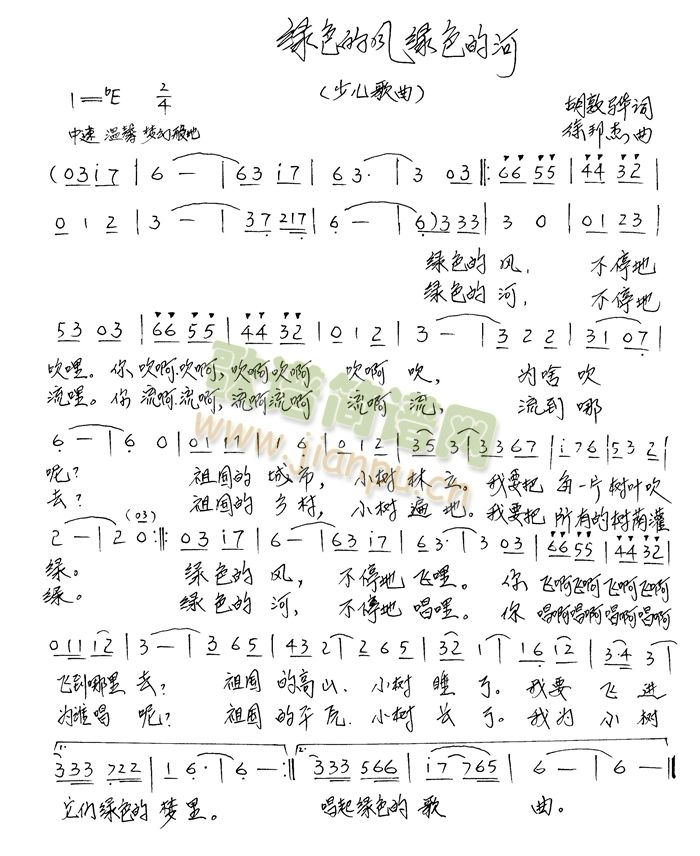 绿色的风 绿色的河
(少儿歌曲)
1=bE 2/4
中速 温馨 梦幻般地
胡敦骅词
徐邦杰曲
(03i7 | 6 — | 63 i7 | 63· | 3 03 ‖: 66 55 | 44 32 |
012 | 3 — | 37 217 | 6 — | 6) 333 | 3 0 | 01 23 |
绿色的 风, 不停地
绿色的 河, 不停地
53 03 | 66 55 | 44 32 | 012 | 3 — | 322 | 31 07 |
吹哩。你 吹啊吹啊,吹啊吹啊 吹啊 吹, 为啥 吹
流哩。你 流啊流啊,流啊流啊 流啊 流, 流到 哪
6 — | 6 0 | 01 11 | 1 6 | 012 | 35 3 | 33 67 | i76 | 532 |
呢? 祖国的 城市, 小树 林立。我要把 每一片 树叶吹
去? 祖国的 乡村, 小树 遍地。我要把 所有的 树荫灌
2 — | 2 0 :‖: (03) 03 i7 | 6 — | 63 i7 | 63· | 3 03 | 66 55 | 44 32 |
绿。 绿色的 风, 不停地 飞哩。 你 飞啊飞啊飞啊飞啊
绿。 绿色的 河, 不停地 唱哩。 你 唱啊唱啊唱啊唱啊
011 i2 | 3 — | 3 65 | 43 2 | 2 65 | 53 2 | 32 1 | 16 12 | 3·4 3 |
飞到哪里 去? 祖国 的高山、小树 睡了。我要 飞进
为谁唱 呢? 祖国 的平原、小树 长了。我为 小树
1. 333 722 | 1 6· | 6 — :‖ 2. 333 566 | i7 765 | 6 — | 6 — ‖
它们绿色的 梦里。 唱起绿色的 歌 曲。
歌谱简谱网
www.jianpu.cn